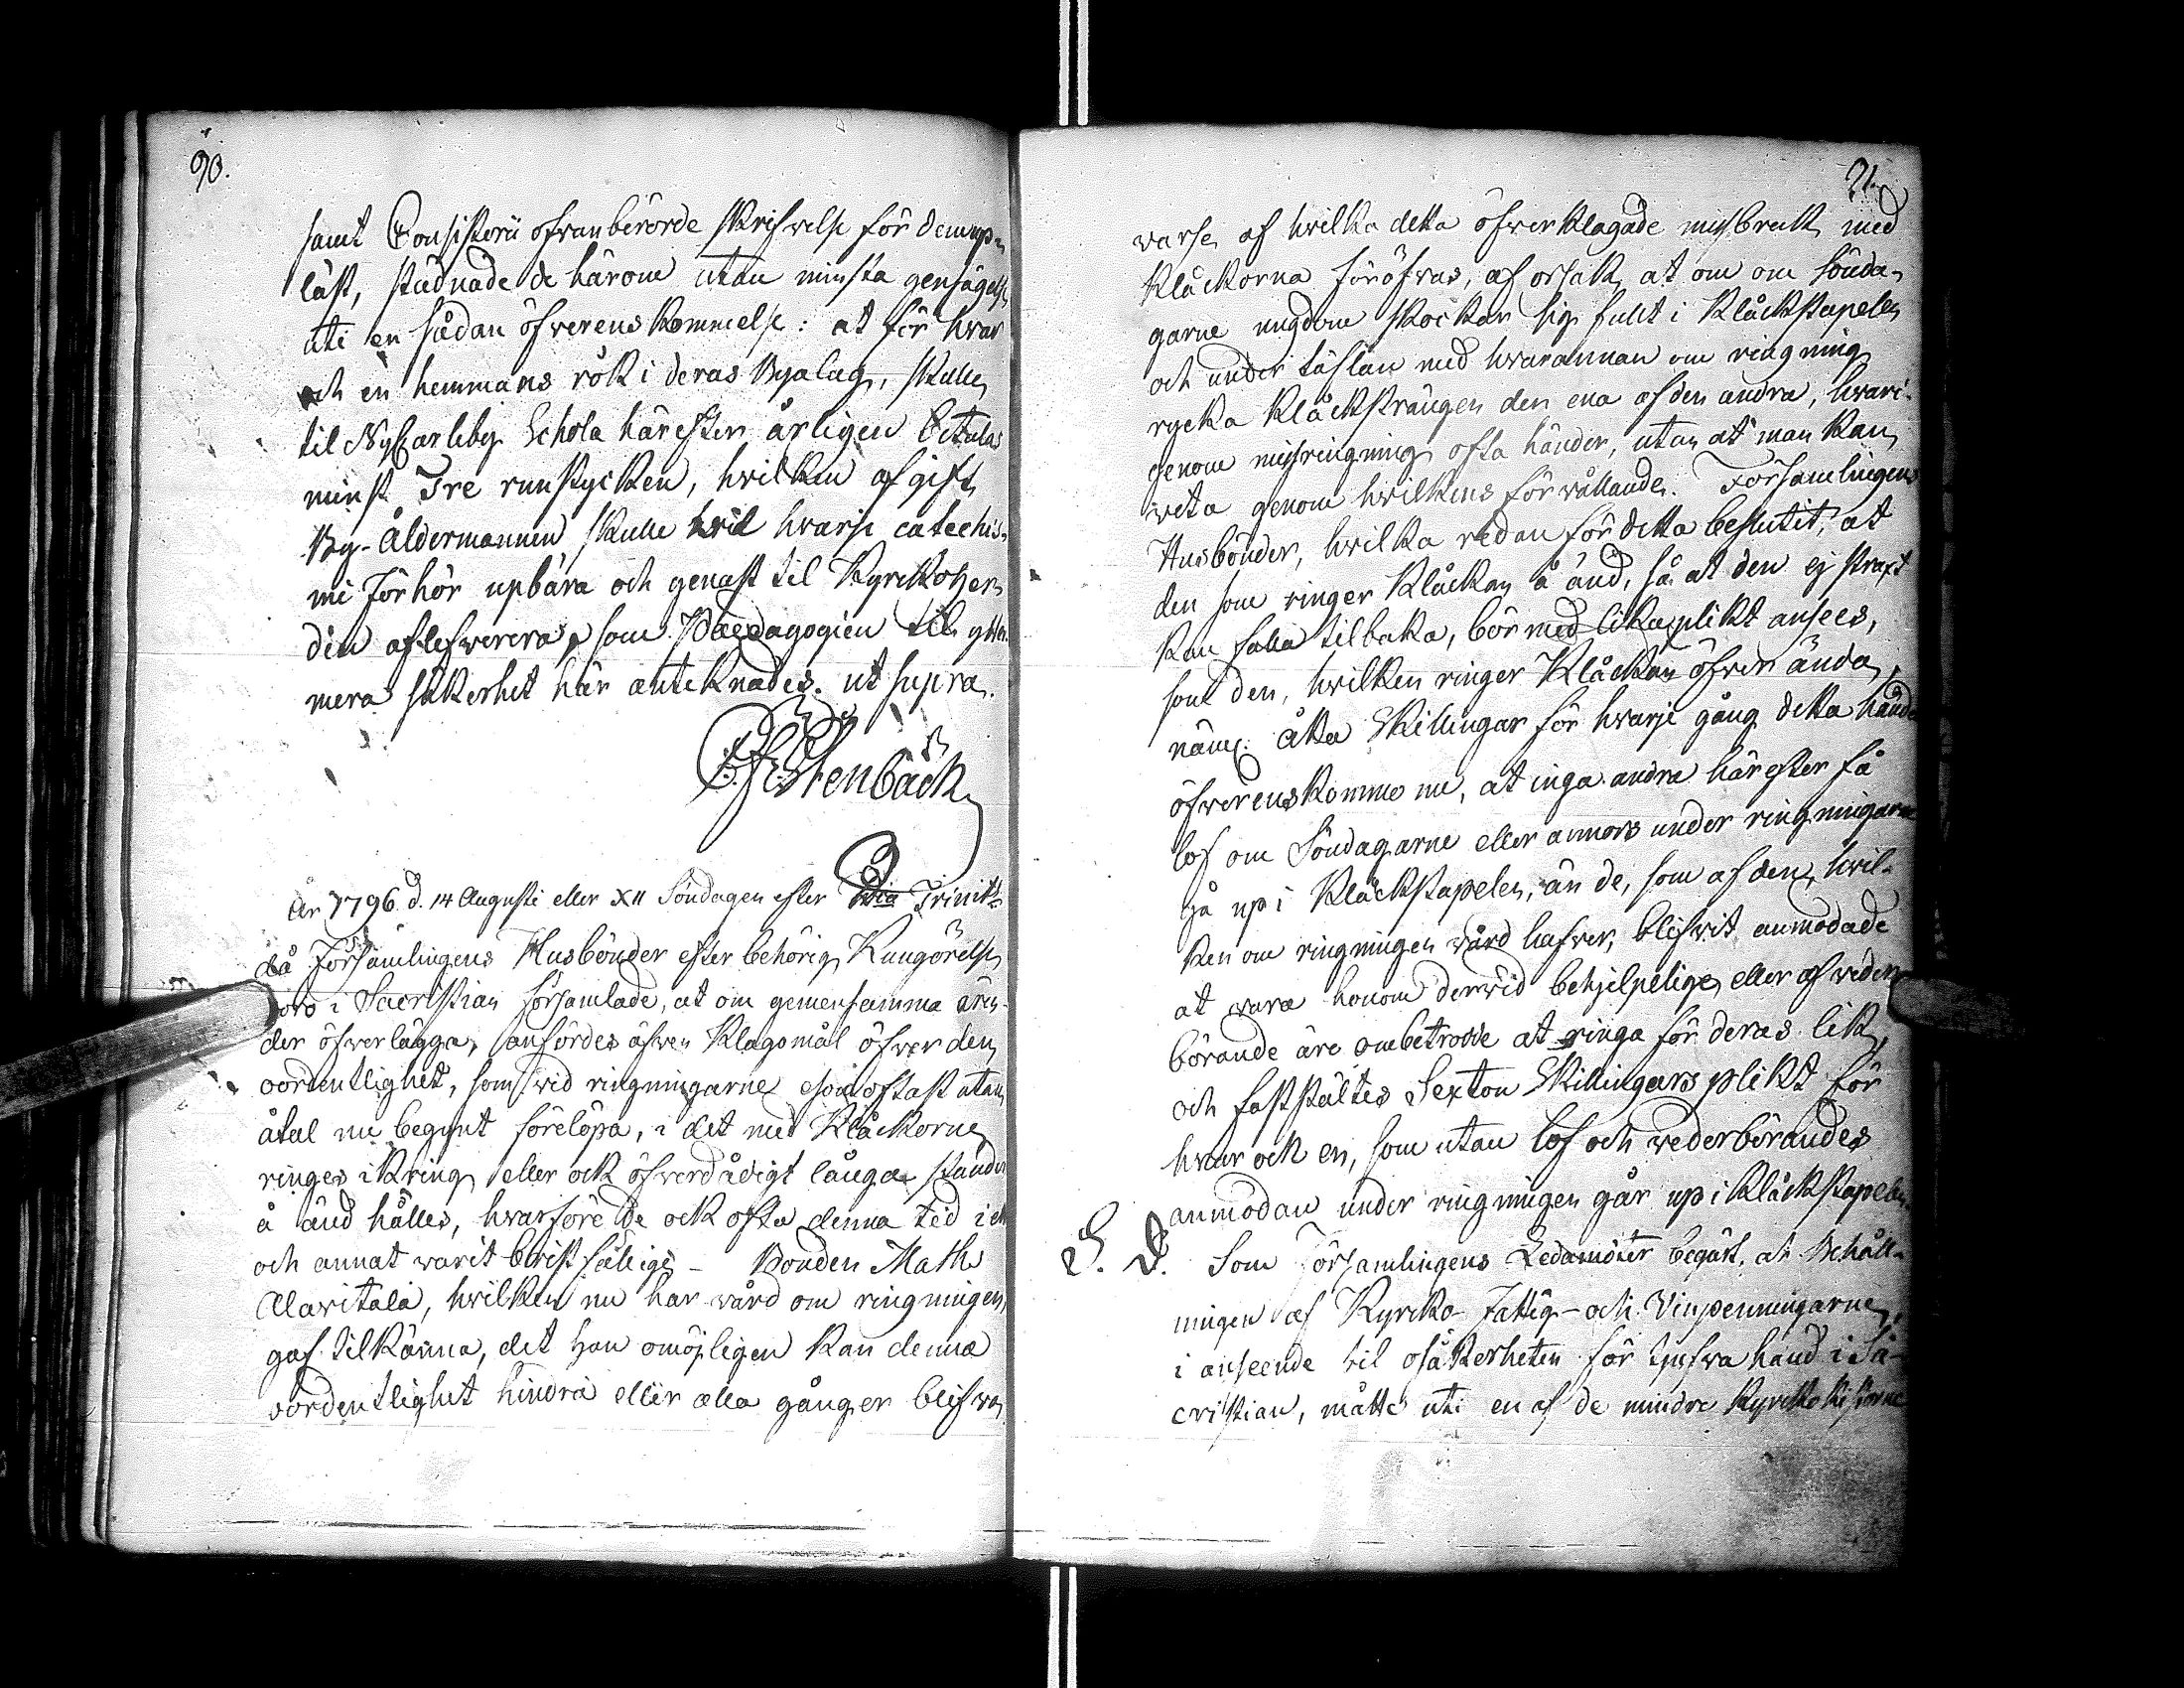 90.
samt Consistorii ofvanberörde skrifvelse för dem up-
läst, stadnade de härom utan minsta gensägelse
uti en sådan öfverenskommelse: at för hvar
och en hemmans rök i deras Byalag, skulle
til NyCarleby Schola härefter årligen betalas
minst Tre runstycken, hvilken afgift
By-Åldermannen skulle vid hvarje catechis-
mi förhör upbära och genast til Kyrkoher-
den aflefverera, som Pædagogien til
mera säkerhet här antecknades. ut supra.
Stenbäck
År 1796 d. 14 Augusti eller XII Söndagen efter Trinit:
då Församlingens Husbönder efter behörig Kungörelse
voro i Sacristian församlade, at om gemensamma ären-
der öfverlägga, anfördes äfven klagomål öfver den
oordentlighet, som vid ringningarne som oftast utan
åtal nu begynt förelöpa, i det med Klåckorne
ringes ikring eller ock öfverdådigt långa stunder
å änd hålles, hvarföre de ock ofta denna tid i ett
och annat varit bristfällige - Bonden Math.
Alavitala, hvilken nu har vård om ringningen,
gaf tilkänna, det han omöjligen kan denna
oordentlighet hindra eller alla gånger blifva
91.
varse, af hvilka detta öfverklagade misbruk med
Klåckorna föröfvas, af orsak, at om om Sönda-
garne ungdom skockar sig fullt i Klåckstapelen
och under täflan med hvarannan om ringning
rycka Klåcksträngen den ena af den andra, hvari-
genom misringning ofta händer, utan at man kan
veta genom hvilkens förvållande. Församlingens
Husbönder, hvilka redan för detta beslutit, at
den som ringer Klåckan å änd, så at den ej strax
kan falla tilbaka, bör med lika plikt ansees,
som den, hvilken ringer Klåckan öfver ända,
näml. åtta Skillingar för hvarje gång detta händer
öfverenskommo nu, at inga andra härefter få
lof om Söndagarne eller annors under ringningarne
gå up i Klåckstapelen, än de, som af den, hvil-
ken om ringningen vård hafver, blifvit anmodade
at vara honom dervid behjelpelige, eller af veder-
börande äro ombetrodde at ringa för deras lik,
och fastställtes Sexton Skillingars plikt för
hvar och en, som utan lof och vederbörandes
anmodan under ringningen går up i Klåckstapelen.
S. D. Som Församlingens Ledamöter begärt, at Behåll-
ningen af Kyrko- Fattig- och Vinpenningarne,
i anseende til osäkerheten för tjufva hand i Sa-
cristian, måtte uti en af de mindre Kyrkokistorne